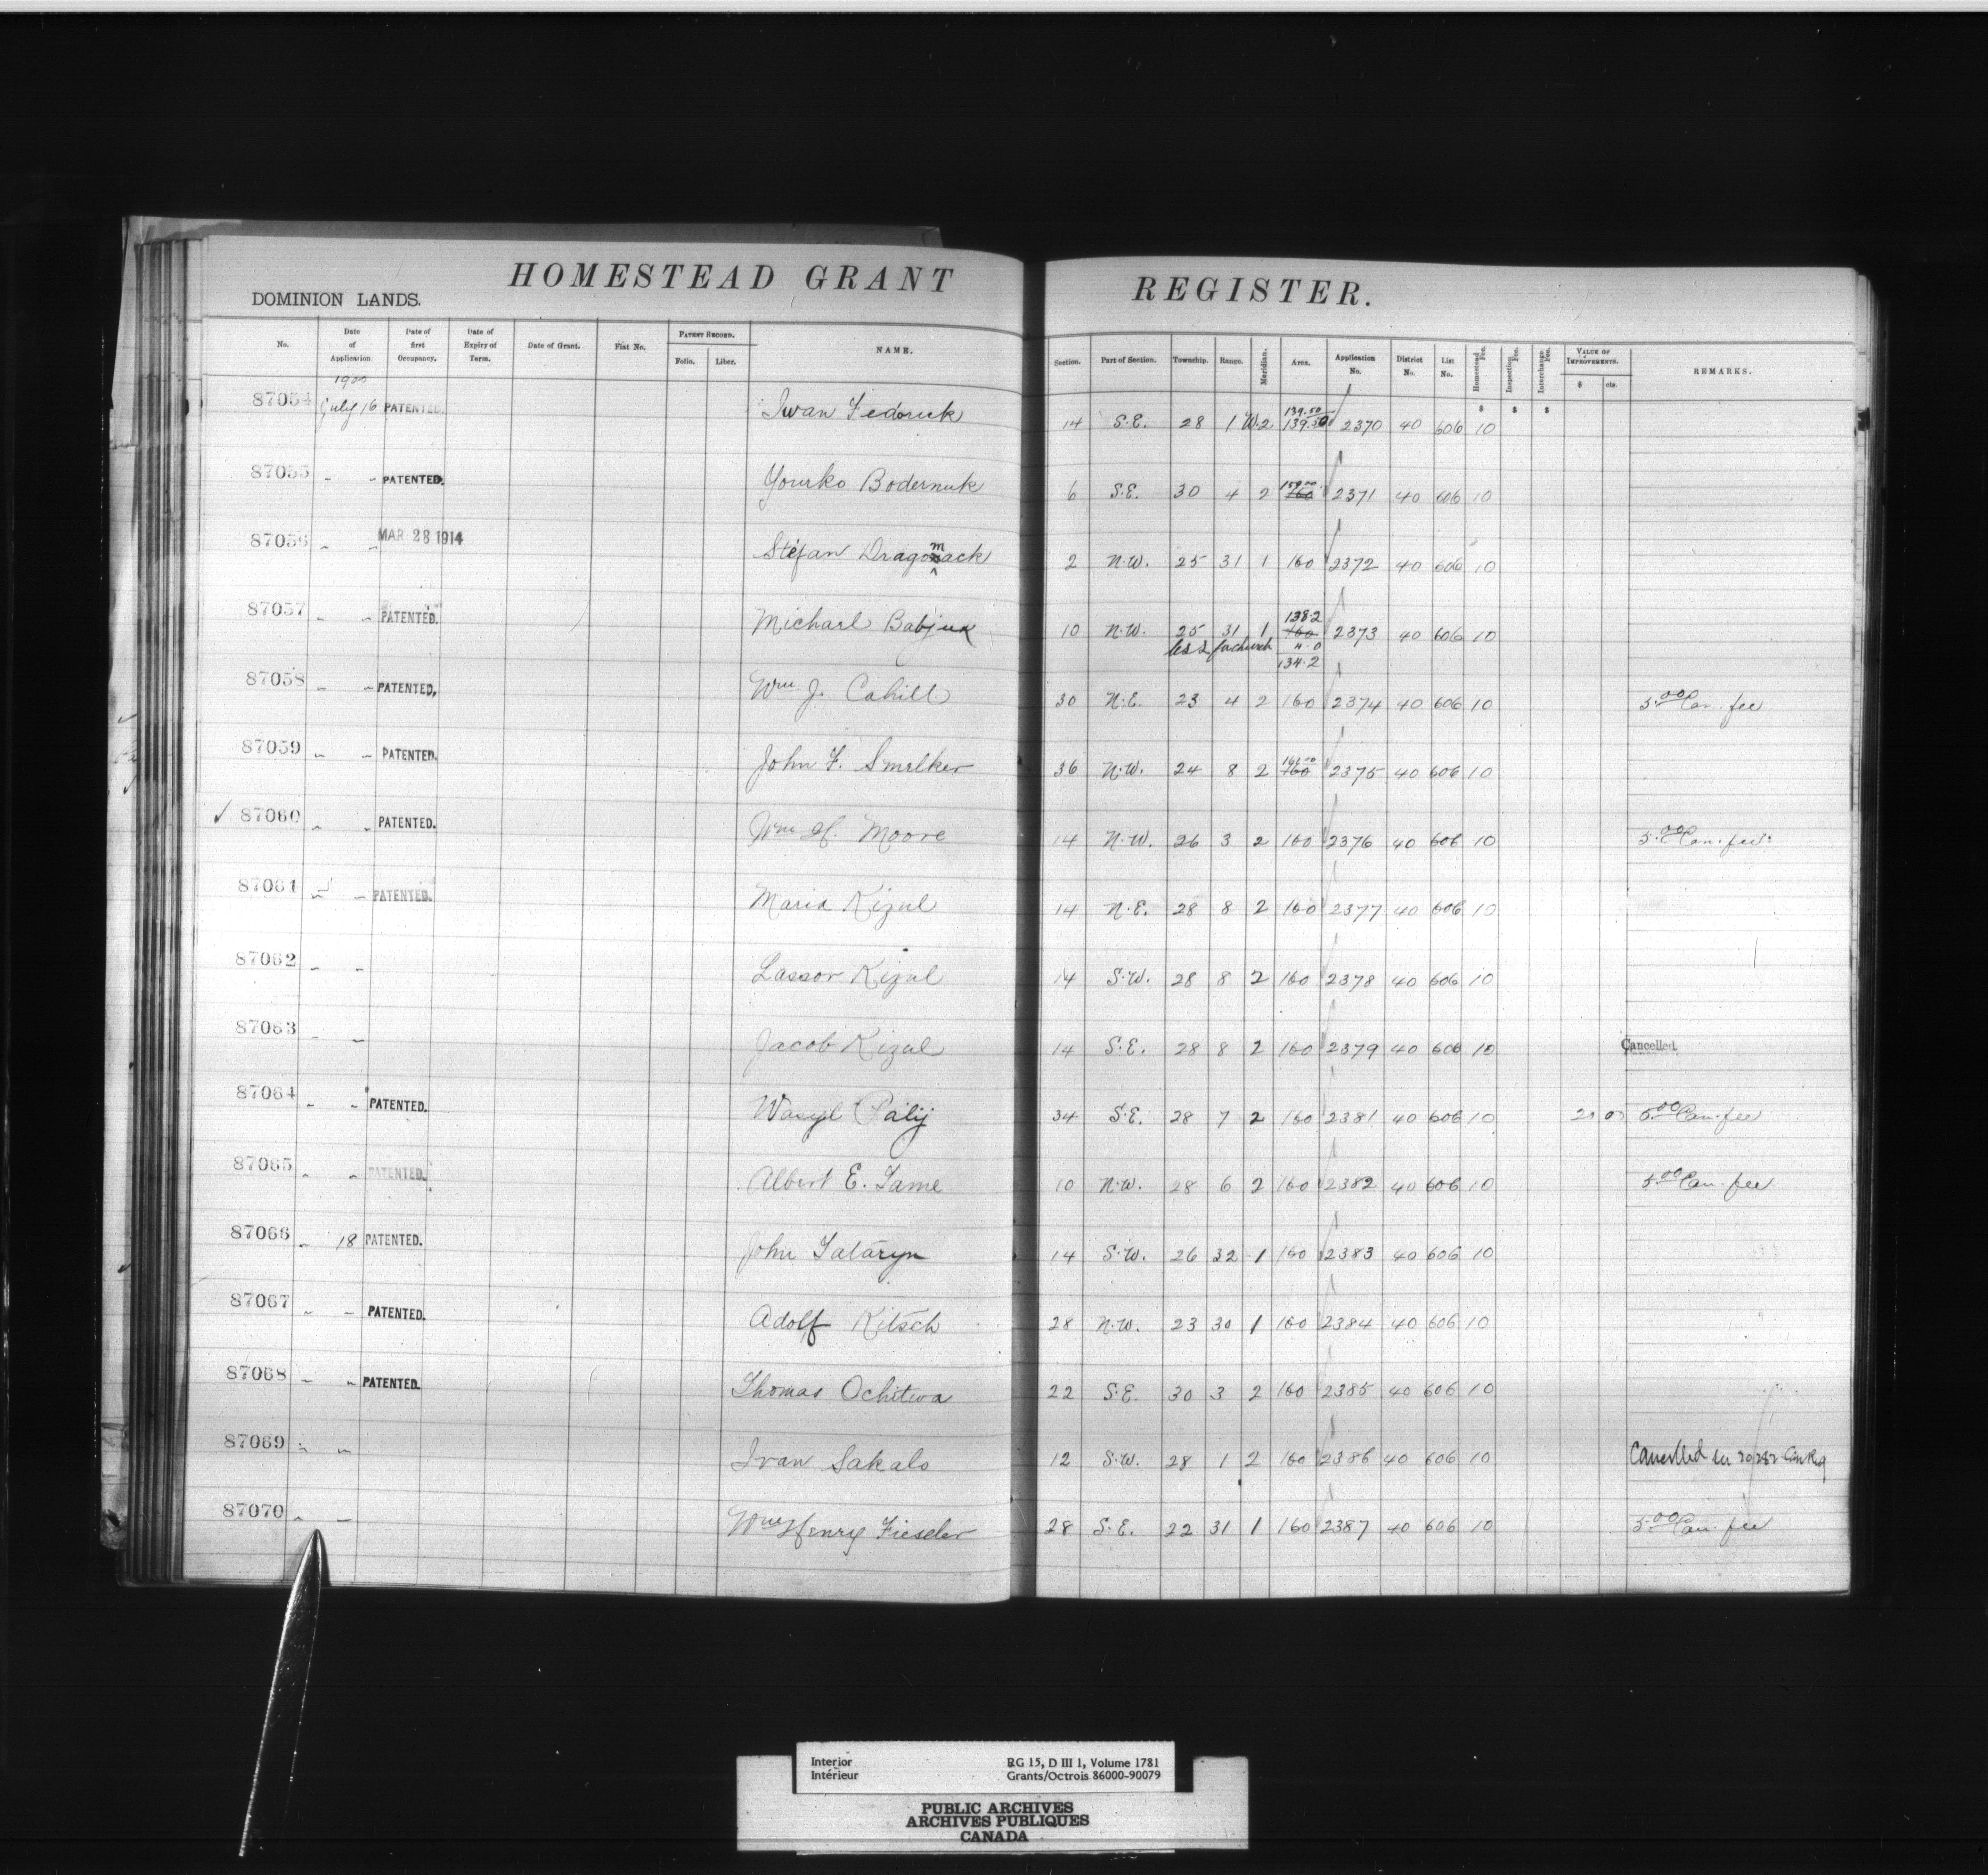 HOMESTEAD GRANT REGISTER.
DOMINION LANDS.
No. Date of Application. Date of first Occupancy. Date of Expiry of Term. Date of Grant. Fiat No. PATENT RECORD. Folio. Liber. NAME. Section. Part of Section. Township. Range. Meridian. Area. Application No. District No. List No. Homestead Fee. Inspection Fee. Interchange Fee. VALUE OF IMPROVEMENTS. $ cts. REMARKS.
$ $ $
87054 July 16 PATENTED. Iwan Fedoruk 14 S.E. 28 1 W.2 139.50 139.50 2370 40 606 10
87055 " " PATENTED. Yourko Bodernuk 6 S.E. 30 4 2 159.00 160 2371 40 606 10
87056 " " MAR 28 1914 Stefan Dragomack 2 N.W. 25 31 1 160 2372 40 606 10
87057 " " PATENTED. Michael Babjuk 10 N.W. 25 31 1 138.2 160 2373 40 606 10
less for church 4.0
134.2
87058 " " PATENTED. Wm. J. Cahill 30 N.E. 23 4 2 160 2374 40 606 10 5.00 Can. fee
87059 " " PATENTED. John F. Smelker 36 N.W. 24 8 2 160 2375 40 606 10
✓ 87060 " " PATENTED. Wm H. Moore 14 N.W. 26 3 2 160 2376 40 606 10 5.00 Can. fee
87061 " " PATENTED. Maria Kizul 14 N.E. 28 8 2 160 2377 40 606 10
87062 " " Lassor Kizul 14 S.W. 28 8 2 160 2378 40 606 10
87063 " " Jacob Kizul 14 S.E. 28 8 2 160 2379 40 606 10 Cancelled
87064 " " PATENTED. Wasyl Palij 34 S.E. 28 7 2 160 2381 40 606 10 5.00 Can. fee
87065 " " PATENTED. Albert E. Tame 10 N.W. 28 6 2 160 2382 40 606 10 5.00 Can. fee
87066 " 18 PATENTED. John Tataryn 14 S.W. 26 32 1 160 2383 40 606 10
87067 " " PATENTED. Adolf Kitsch 28 N.W. 23 30 1 160 2384 40 606 10
87068 " " PATENTED. Thomas Ochitwa 22 S.E. 30 3 2 160 2385 40 606 10
87069 " " Ivan Sakalo 12 S.W. 28 1 2 160 2386 40 606 10 Cancelled
87070 " " Wm Henry Fieseler 28 S.E. 22 31 1 160 2387 40 606 10 5.00 Can. fee
Interior RG 15, D III 1, Volume 1781
Intérieur Grants/Octrois 86000-90079
PUBLIC ARCHIVES
ARCHIVES PUBLIQUES
CANADA